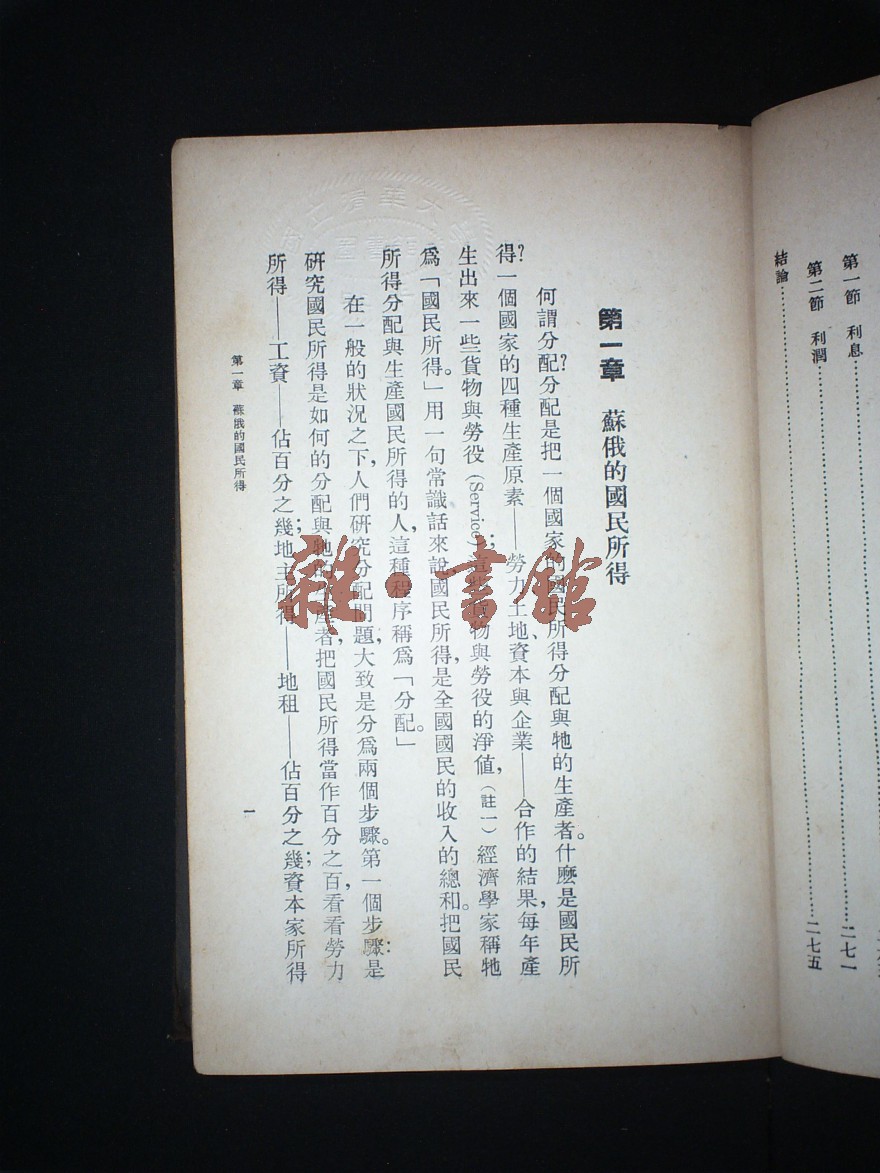 第一節 利息……二七一
第二節 利潤……二七五
結論……
第一章 蘇俄的國民所得
何謂分配?分配是把一個國家的國民所得分配與牠的生產者。什麼是國民所
得?一個國家的四種生產原素——勞力、土地、資本與企業——合作的結果,每年產
生出來一些貨物與勞役(Service);這些貨物與勞役的淨值,(註一)經濟學家稱牠
爲「國民所得。」用一句常識話來說國民所得,是全國國民的收入的總和。把國民
所得分配與生產國民所得的人,這種程序稱爲「分配。」
在一般的狀況之下,人們研究分配問題,大致是分爲兩個步驟。第一個步驟:是
研究國民所得是如何的分配與牠的生產者,把國民所得當作百分之百,看看勞力
所得——工資——佔百分之幾;地主所得——地租——佔百分之幾;資本家所得
第一章 蘇俄的國民所得
一
雜·書館